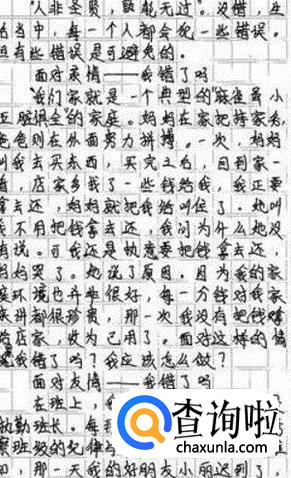 "人非圣贤，孰能无过"。没错，生
活当中，每一个人都会犯一些错误。
但有些错误是可避免的。
面对亲情——我错了吗
"我们家就是一个典型的"麻雀虽小
五脏俱全"的家庭。妈妈在家把持家务，
爸爸则在外面努力拼搏。一次，妈妈
叫我去买东西，买完之后，回到家一
看，店家多找了一些钱给我，我正要
拿去还，妈妈就把我给叫住了。她叫
我不用把钱拿去还，我问为什么她没
有说。可我还是执意要把钱拿去还，
妈妈哭了。她说了原因，因为我的家
庭环境也并非很好，每一分钱对我家
来讲都很珍贵，那一次我没有把钱还
给店家，收为己用了。面对这样的情
况我错了吗？我应该怎么做？
面对友情——我错了吗
在班上，我
执勤班长。每
察班级的纪律
那一天我的好朋友小丽迟到了，
查询啦
chaxunla.com